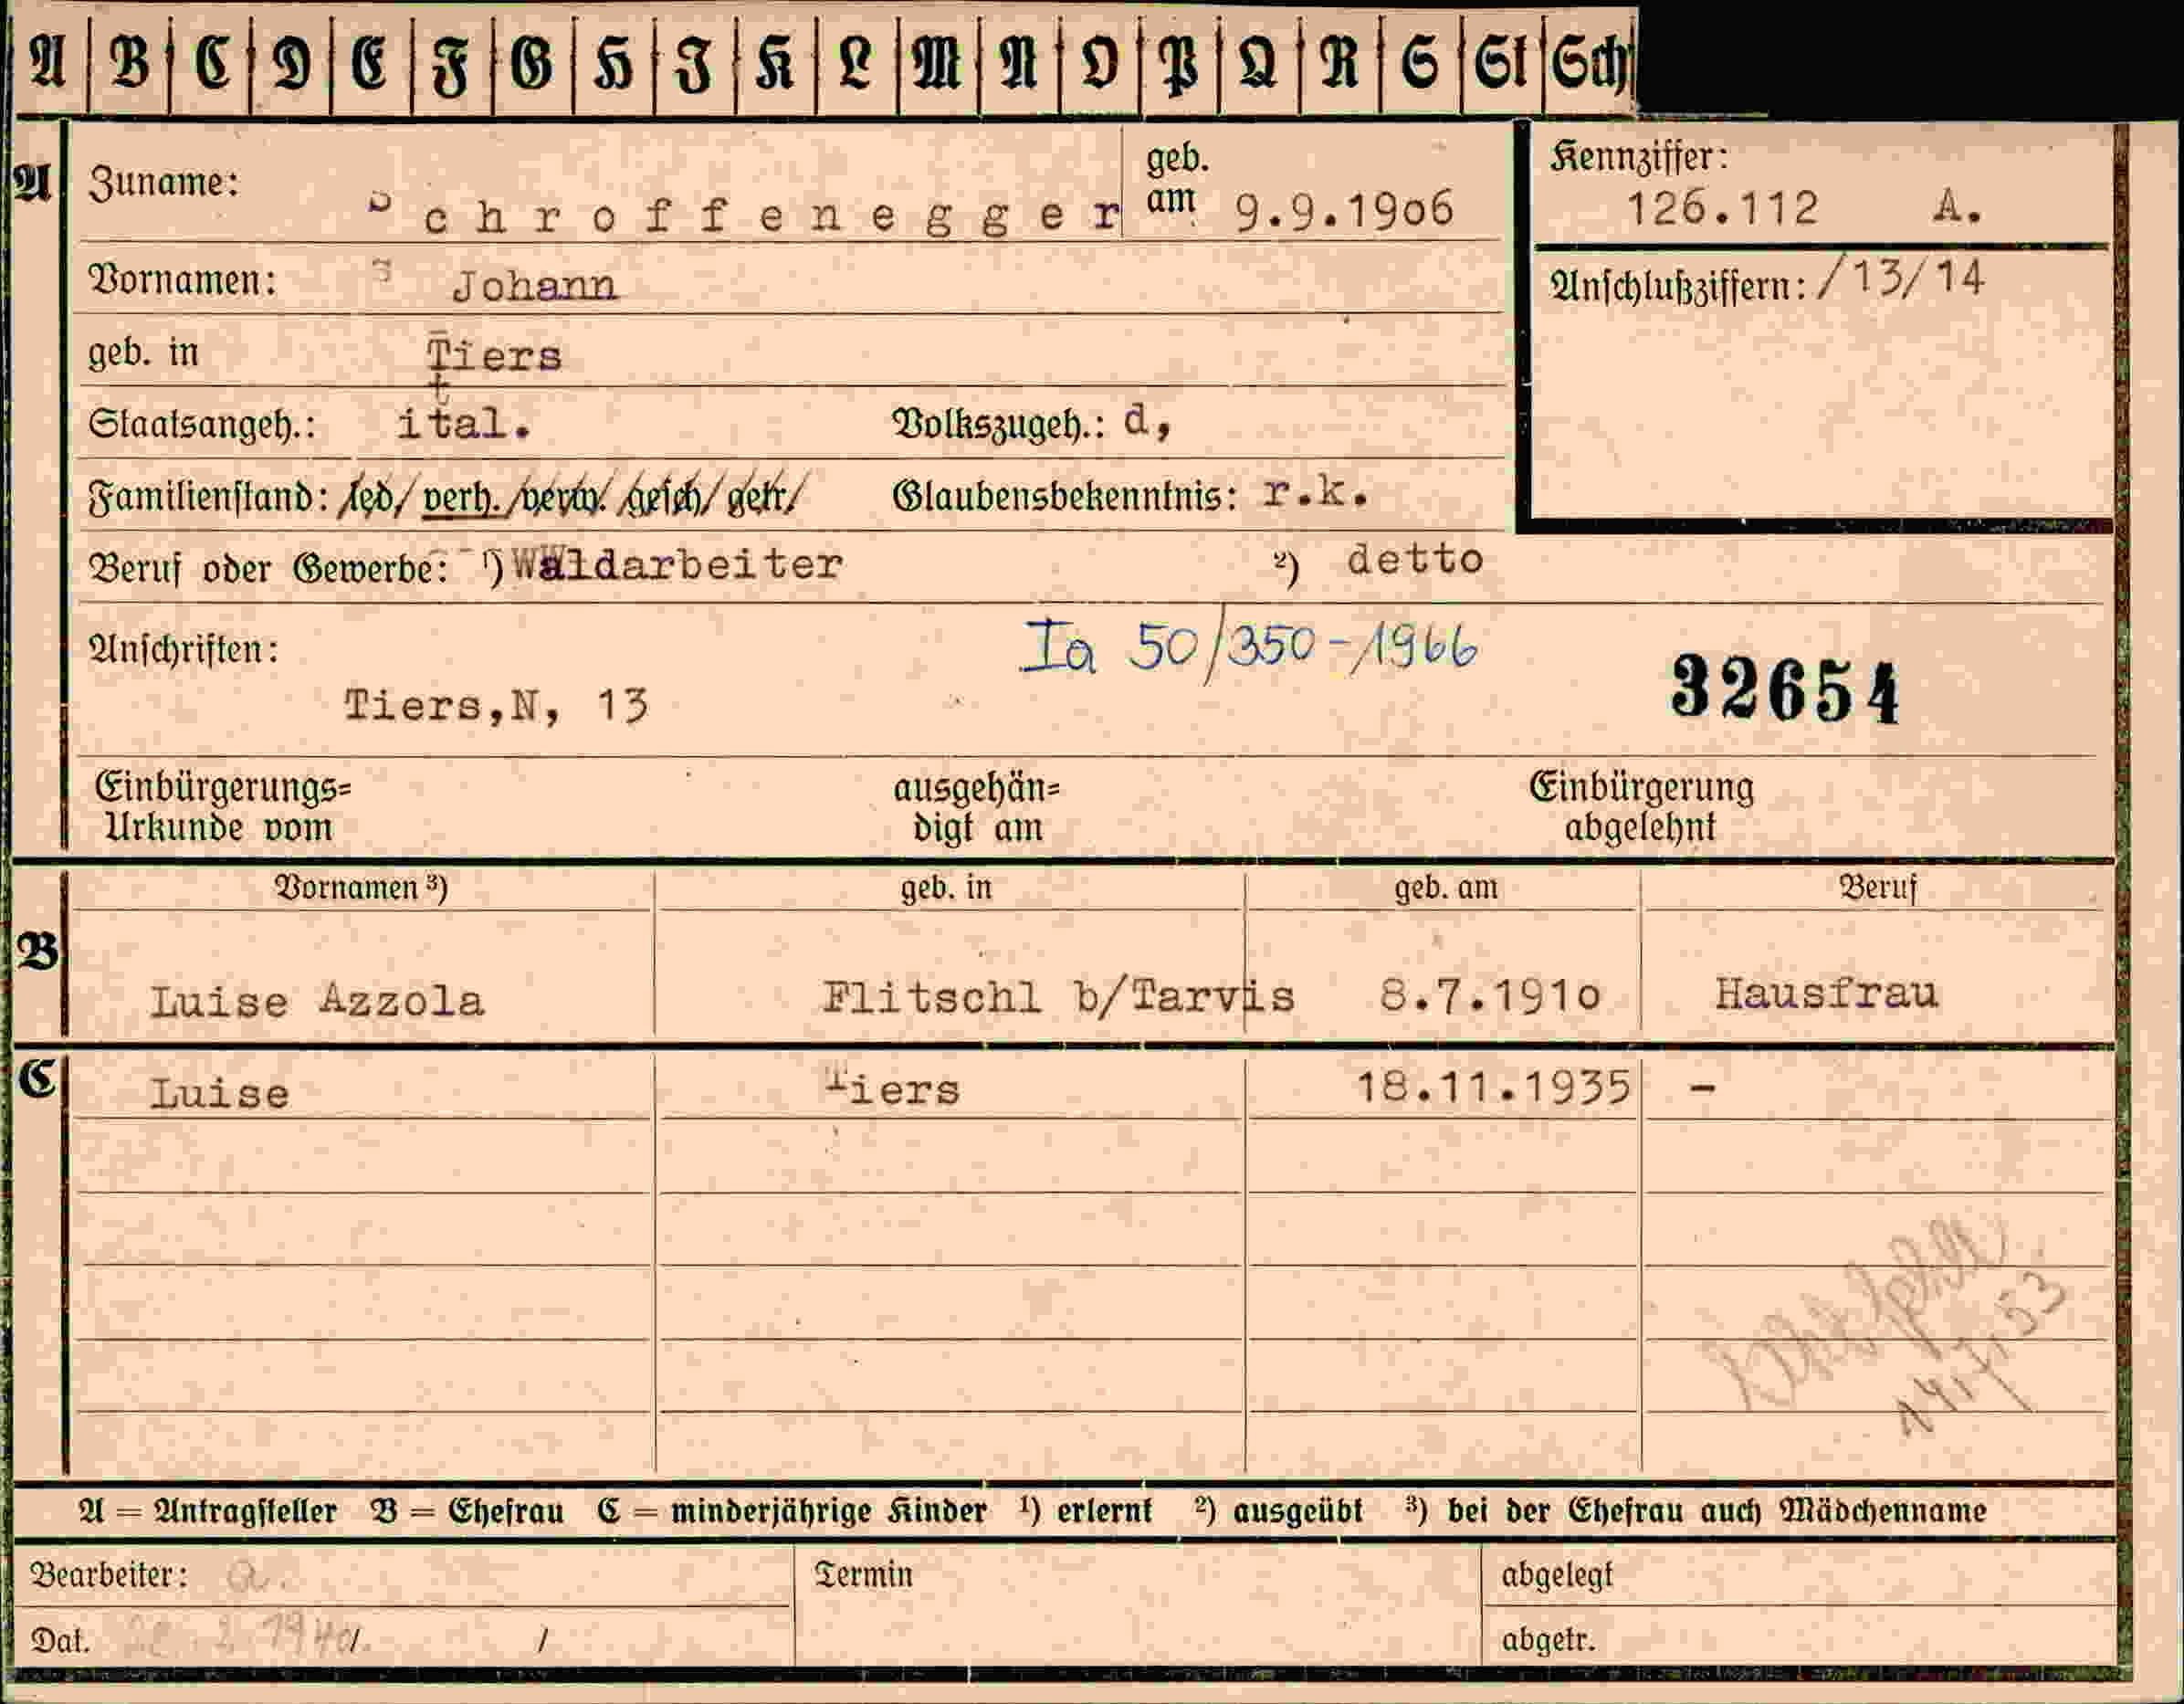 A B C D E F G H I K L M N O P Q R S St Sch
A Zuname: Schroffenegger geb. am 9.9.19o6
Kennziffer: 126.112 A.
Vornamen: Johann
Anschlußziffern: /13/14
geb. in Tiers
Staatsangeh.: ital. Volkszugeh.: d,
Familienstand: led/ verh./verw./gesch/getr/ Glaubensbekenntnis: r.k.
Beruf oder Gewerbe: ¹) Waldarbeiter ²) detto
Anschriften: Ia 50/350-1966
Tiers,N, 13 32654
Einbürgerungs= ausgehän= Einbürgerung
Urkunde vom digt am abgelehnt
Vornamen ³) geb. in geb. am Beruf
B Luise Azzola Flitschl b/Tarvis 8.7.191o Hausfrau
C Luise Tiers 18.11.1935 –
A = Antragsteller B = Ehefrau C = minderjährige Kinder ¹) erlernt ²) ausgeübt ³) bei der Ehefrau auch Mädchenname
Bearbeiter: Termin abgelegt
Dat. / / abgetr.